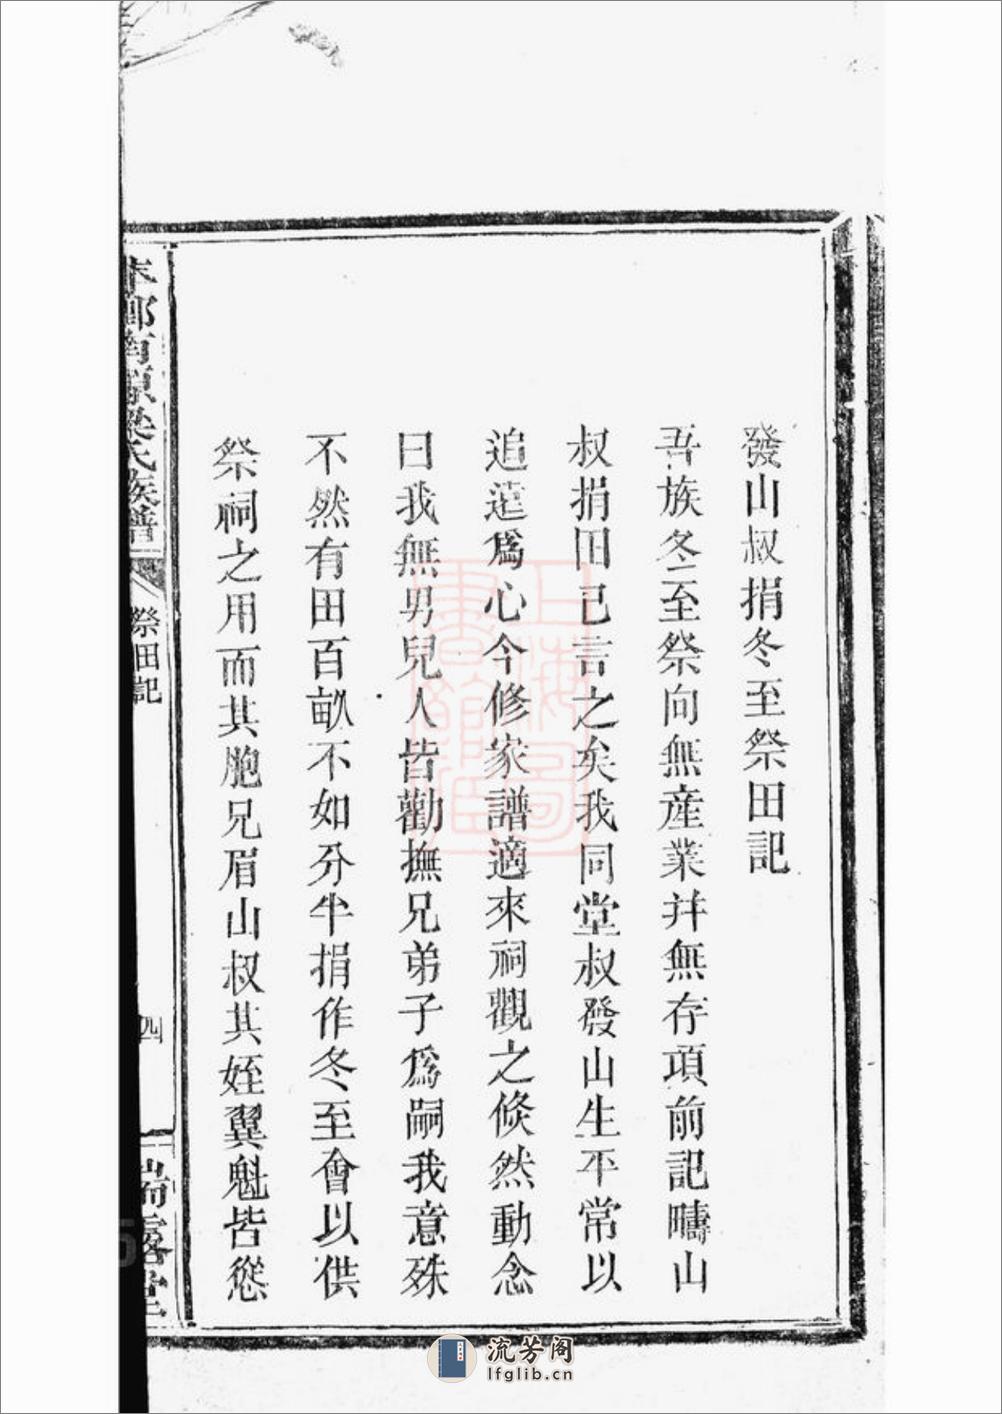 發山叔捐冬至祭田記
吾族冬至祭向無產業并無存項前記疇山
叔捐田已言之矣我同堂叔發山生平常以
追遠爲心今修家譜適來祠觀之倐然動念
曰我無男兒人皆勸撫兄弟子爲嗣我意殊
不然有田百畝不如分半捐作冬至會以供
祭祠之用而其胞兄眉山叔其姪翼魁皆慫
南源梁氏族譜
祭田記
四
瑞露堂
上海圖書館藏
流芳阁
lfglib.cn